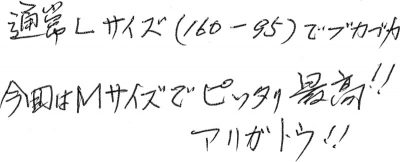 通常Lサイズ(160-95)でブカブカ
今回はMサイズでピッタリ最高!!
アリガトウ!!